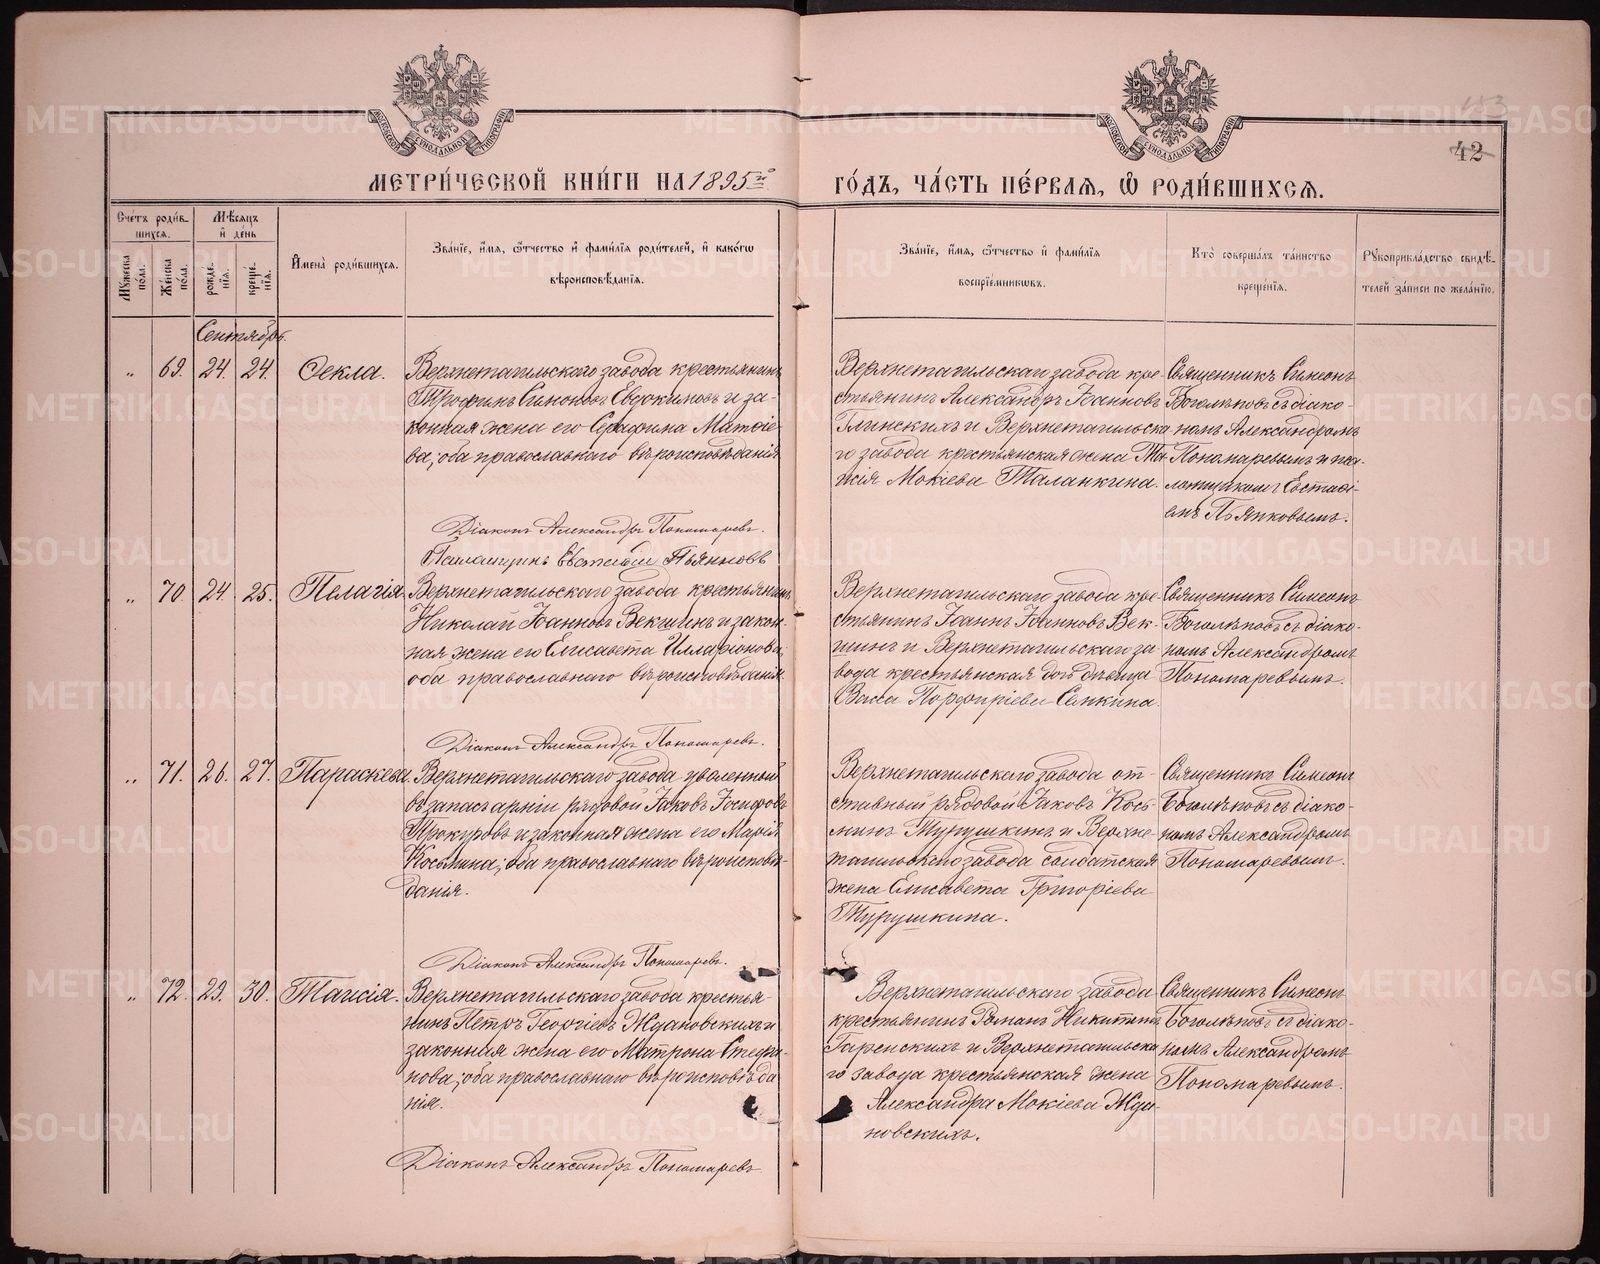 153
42
МОСКОВСКОЙ СѴНОДАЛЬНОЙ ТИПОГРАФІИ
МОСКОВСКОЙ СѴНОДАЛЬНОЙ ТИПОГРАФІИ
МЕТРИ́ЧЕСКОЙ КНИ́ГИ НА 1895й
ГО́ДЪ, ЧА́СТЬ ПЕ́РВАѦ, Ѡ҆ РОДИ́ВШИХСѦ.
Сче́тъ роди́в-
шихсѧ.
Мꙋ́жеска по́ла.
Же́нска по́ла.
Мѣ́сѧцъ
и҆ де́нь
рожде-
нїѧ.
креще-
нїѧ.
И҆мена̀ роди́вшихсѧ.
Зва́нїе, и҆́мѧ, ѻ҆́тчество и҆ фами́лїѧ роди́телей, и҆ како́гѡ
вѣроисповѣ́данїѧ.
Зва́нїе, и҆́мѧ, ѻ҆́тчество и҆ фами́лїѧ
воспрїе́мникѡвъ.
Кто̀ соверша́лъ та́инство
креще́нїѧ.
Рꙋкоприкла́дство свидѣ́-
телей за́писи по жела́нїю.
Сентябрь.
„ 69. 24. 24. Ѳекла.
Верхнетагильскаго завода крестьянинъ
Трофимъ Симоновъ Евдокимовъ и за-
конная жена его Серафима Матѳіе-
ва, оба православнаго вѣроисповѣданія
Діаконъ Александръ Пономаревъ.
Псаломщикъ Евстафій Пьянковъ
Верхнетагильскаго завода кре-
стьянинъ Александръ Іоанновъ
Глинскихъ и Верхнетагильска
го завода крестьянская жена Та-
исія Мокіева Таланкина.
Священникъ Симеонъ
Боголѣповъ съ діако-
номъ Александромъ
Пономаревымъ и пса-
ломщикомъ Евстафі-
емъ Пьянковымъ.
„ 70. 24. 25. Пелагія
Верхнетагильскаго завода крестьянинъ
Николай Іоанновъ Векшинъ и закон-
ная жена его Елисавета Илларіонова,
оба православнаго вѣроисповѣданія
Діаконъ Александръ Пономаревъ.
Верхнетагильскаго завода кре-
стьянинъ Іоаннъ Іоанновъ Век-
шинъ и Верхнетагильскаго за
вода крестьянская дочь дѣвица
Васса Порфиріева Елькина.
Священникъ Симеонъ
Боголѣповъ съ діако-
номъ Александромъ
Пономаревымъ.
„ 71. 26. 27. Параскева.
Верхнетагильскаго завода уволенный
въ запасъ арміи рядовой Іаковъ Іосифовъ
Прокуровъ и законная жена его Марія
Косьмина, оба православнаго вѣроисповѣ-
данія.
Діаконъ Александръ Пономаревъ.
Верхнетагильскаго завода от-
ставный рядовой Іаковъ Кось-
минъ Турушкинъ и Верхне-
тагильскаго завода солдатская
жена Елисавета Григоріева
Турушкина.
Священникъ Симеонъ
Боголѣповъ съ діако-
номъ Александромъ
Пономаревымъ.
„ 72. 29. 30. Таисія.
Верхнетагильскаго завода крестья-
нинъ Петръ Георгіевъ Ждановскихъ и
законная жена его Матрона Стефа-
нова, оба православнаго вѣроисповѣда
нія.
Діаконъ Александръ Пономаревъ
Верхнетагильскаго завода
крестьянинъ Романъ Никитинъ
Гаренскихъ и Верхнетагильска
го завода крестьянская жена
Александра Мокіева Жда-
новскихъ.
Священникъ Симеонъ
Боголѣповъ съ діако-
номъ Александромъ
Пономаревымъ.
METRIKI.GASO-URAL.RU